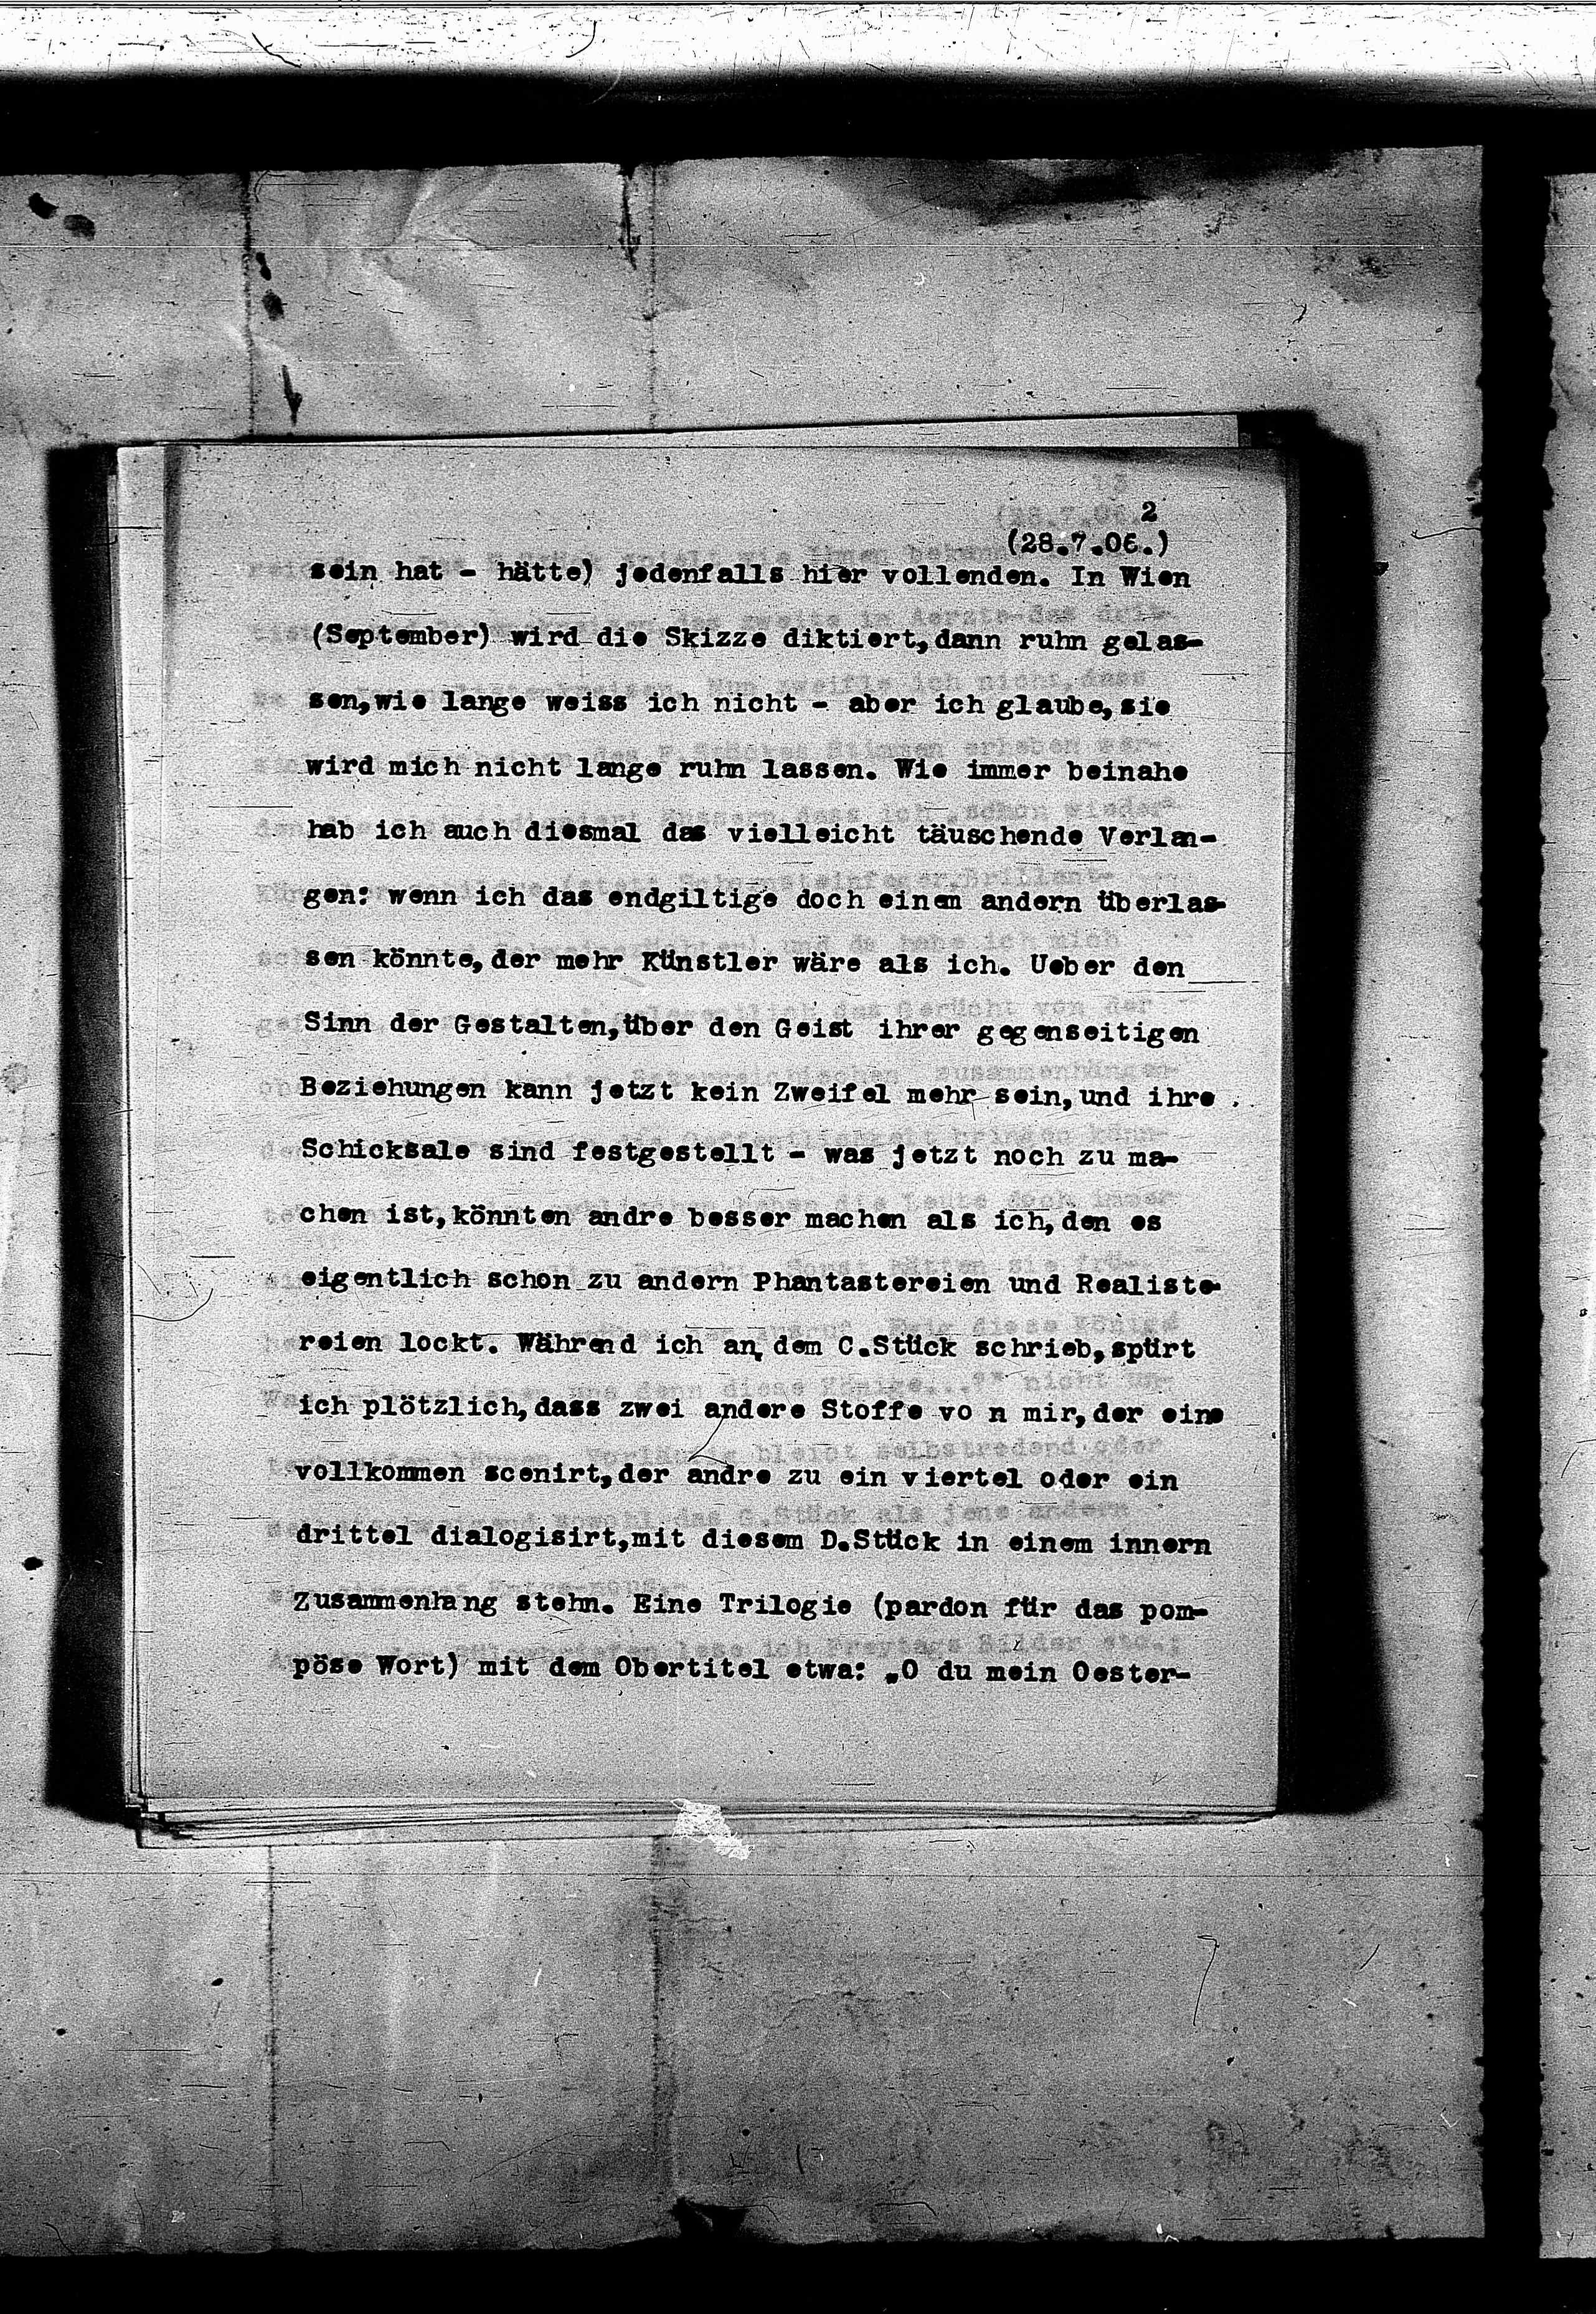 2
(28.7.06.)
sein hat - hätte) jedenfalls hier vollenden. In Wien
(September) wird die Skizze diktiert, dann ruhn gelas-
sen, wie lange weiss ich nicht - aber ich glaube, sie
wird mich nicht lange ruhn lassen. Wie immer beinahe
hab ich auch diesmal das vielleicht täuschende Verlan-
gen: wenn ich das endgiltige doch einem andern überlas-
sen könnte, der mehr Künstler wäre als ich. Ueber den
Sinn der Gestalten, über den Geist ihrer gegenseitigen
Beziehungen kann jetzt kein Zweifel mehr sein, und ihre
Schicksale sind festgestellt - was jetzt noch zu ma-
chen ist, könnten andre besser machen als ich, den es
eigentlich schon zu andern Phantastereien und Realiste-
reien lockt. Während ich an dem C.Stück schrieb, spürt
ich plötzlich, dass zwei andere Stoffe vo n mir, der eine
vollkommen scenirt, der andre zu ein viertel oder ein
drittel dialogisirt, mit diesem D.Stück in einem innern
Zusammenhang stehn. Eine Trilogie (pardon für das pom-
pöse Wort) mit dem Obertitel etwa: „O du mein Oester-